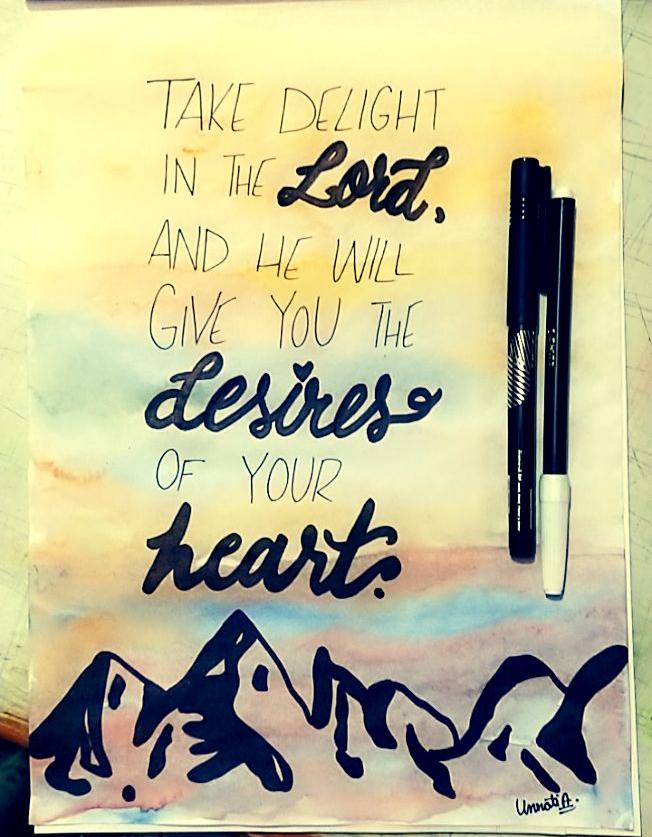 TAKE DELIGHT
IN THE Lord,
AND HE WILL
GIVE YOU THE
desires
OF YOUR
heart.
Unnati A.